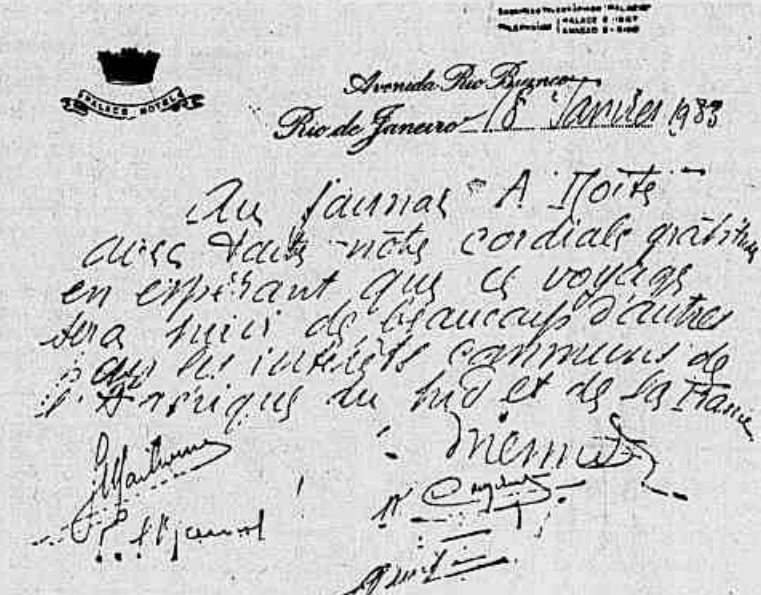 PALACE HOTEL
Avenida Rio Branco
Rio de Janeiro 18 Janvier 1933
Au journal "A Noite"
avec toute notre cordiale gratitude
en espérant que ce voyage
sera suivi de beaucoup d'autres
pour les intérêts communs de
l'Amérique du Sud et de la France
Mermoz